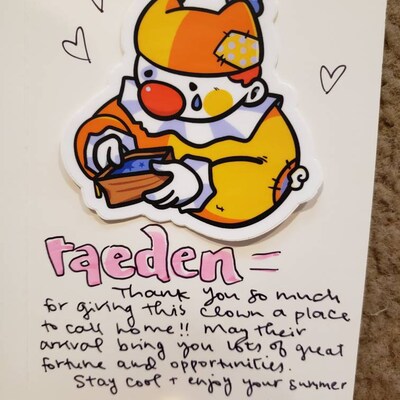 raeden =
Thank you so much
for giving this clown a place
to call home!! May their
arrival bring you lots of great
fortune and opportunities.
Stay cool + enjoy your summer